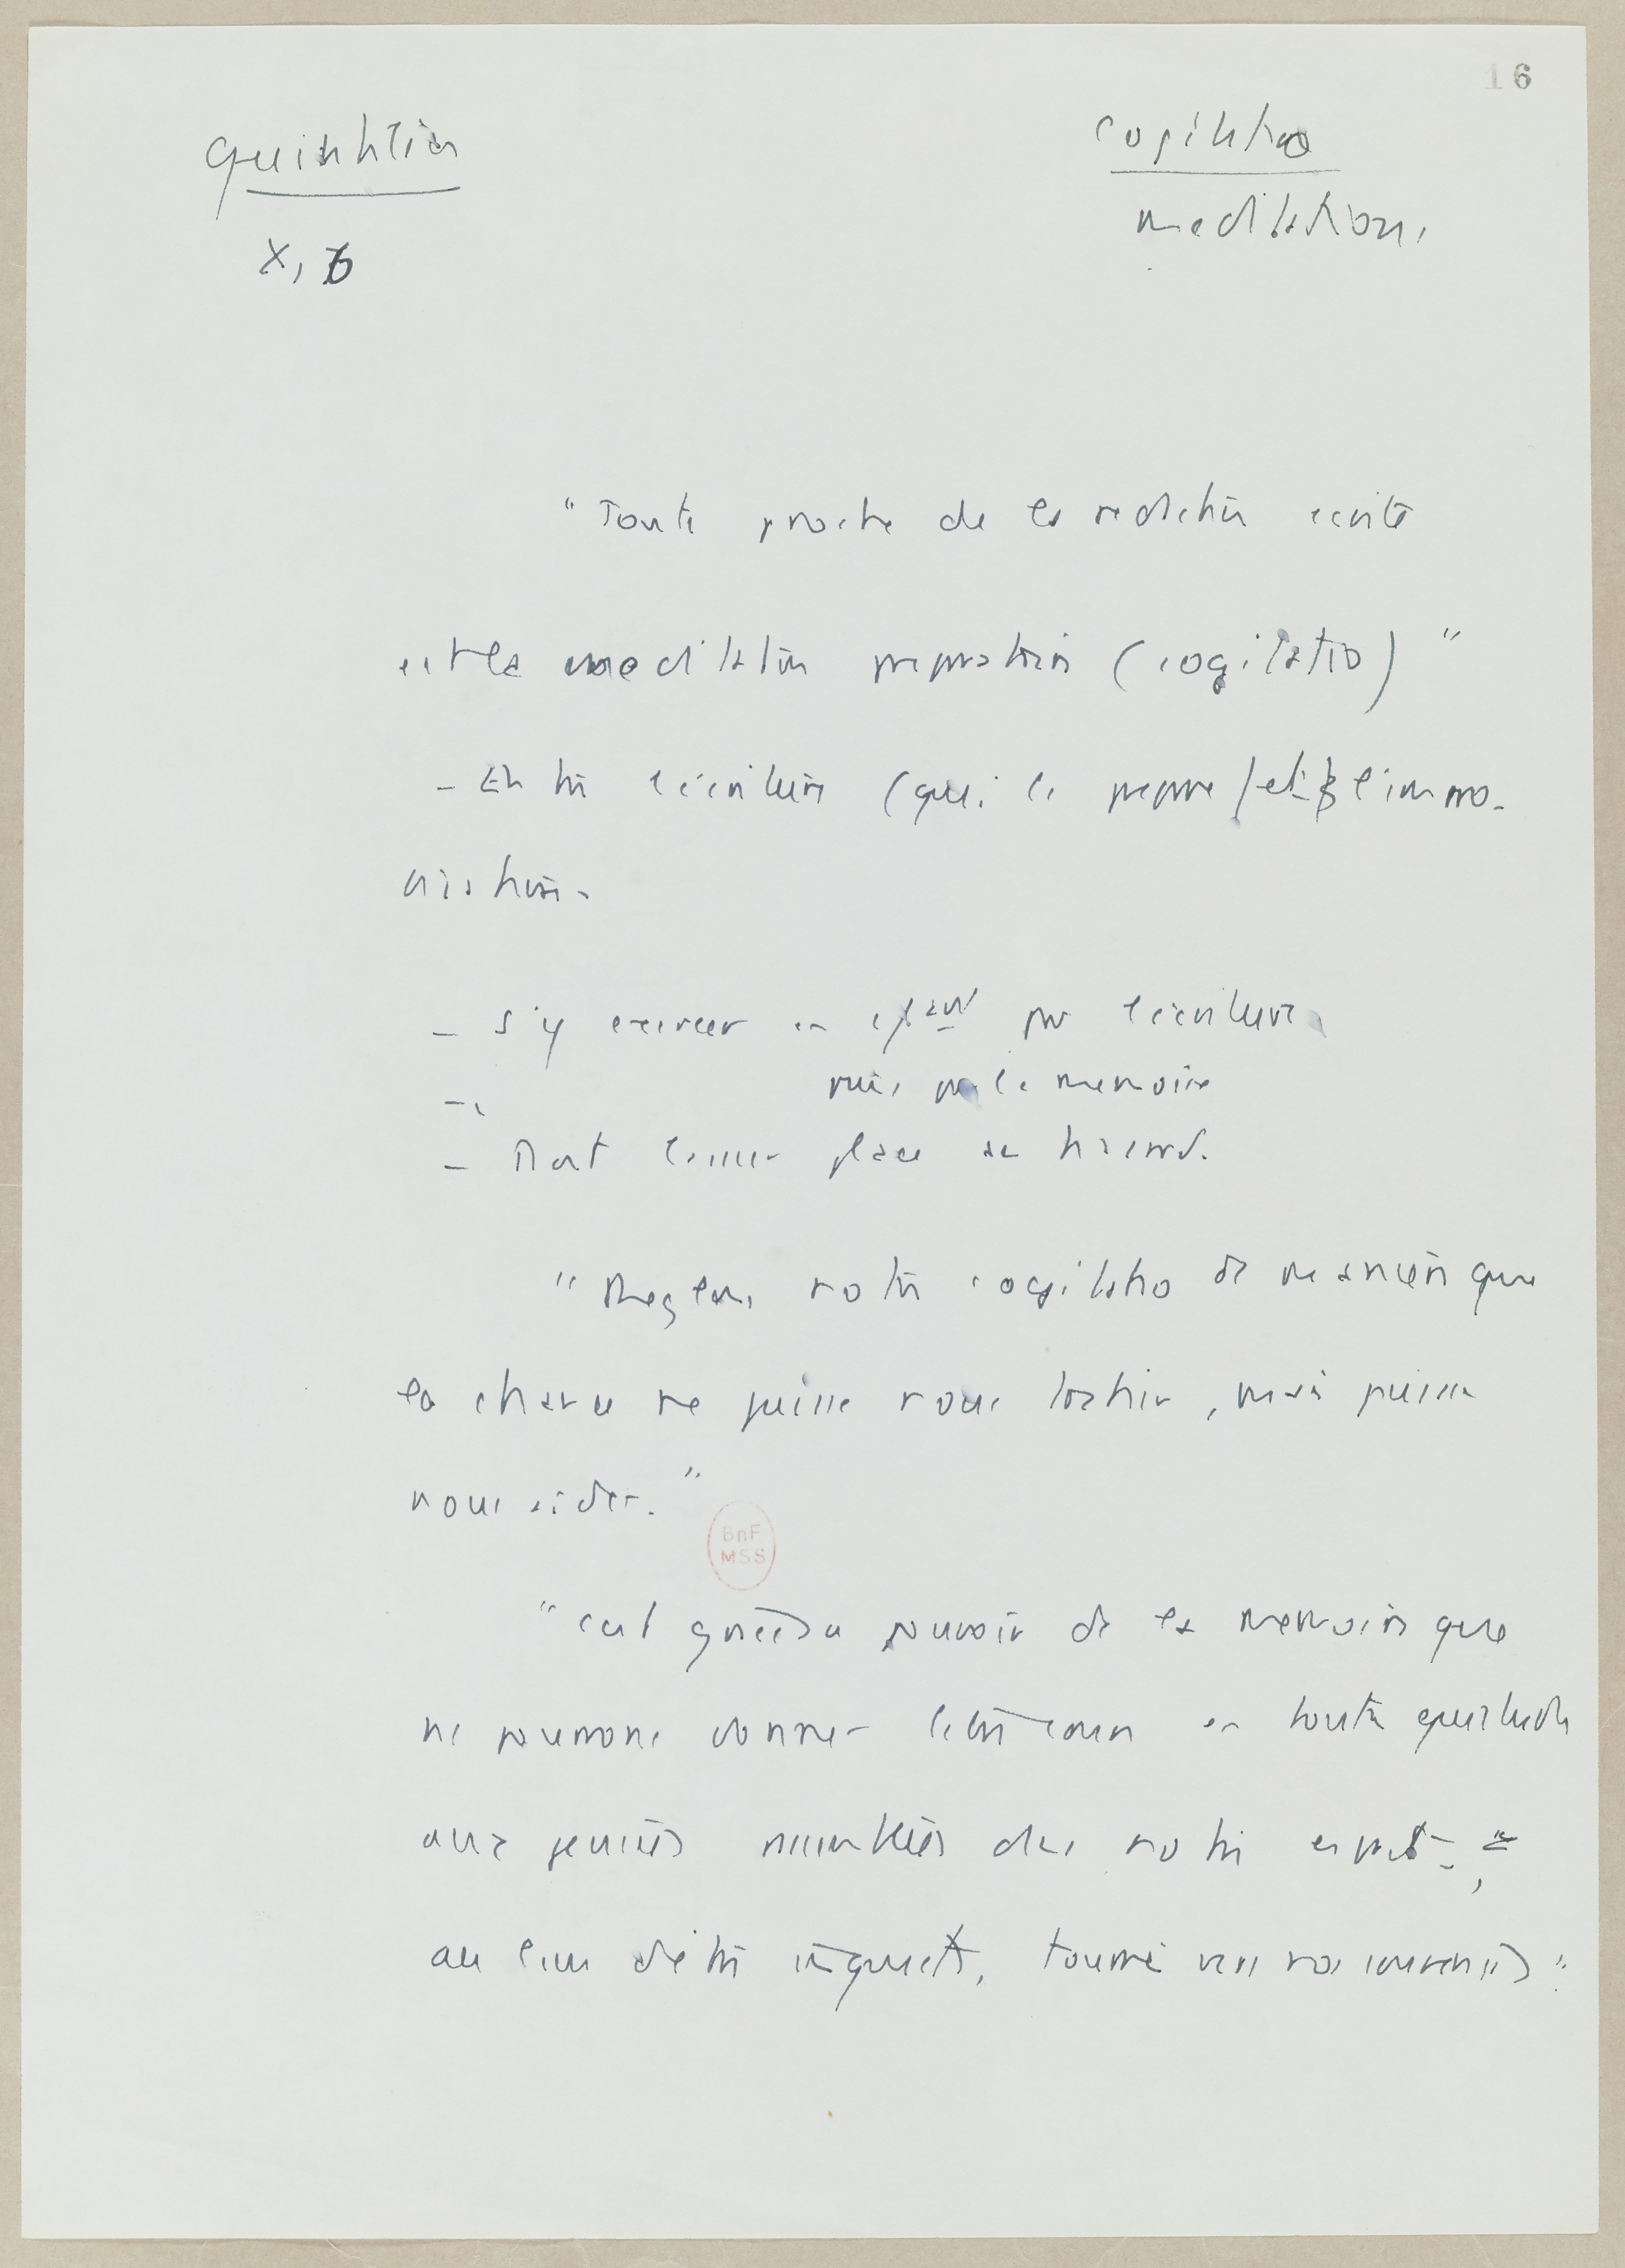 16
Quintilien
X, 6
cogitatio
meditation.
"Toute proche de la rédaction écrite
est la méditation préparatoire (cogitatio)"
- Entre l'écriture (qui la prépare) et l'impro-
visation.
- S'y exercer en par l'écriture
puis par la mémoire
- Doit laisser place au hasard.
"Réglons notre cogitatio de manière que
la chance ne puisse nous trahir, mais puisse
nous aider."
BnF
MSS
"C'est grâce au pouvoir de la mémoire que
ns pourrons donner libre cours en toute quiétude
aux pensées dans notre esprit,
au lieu d'être inquiets, tournés vers nos souvenirs"